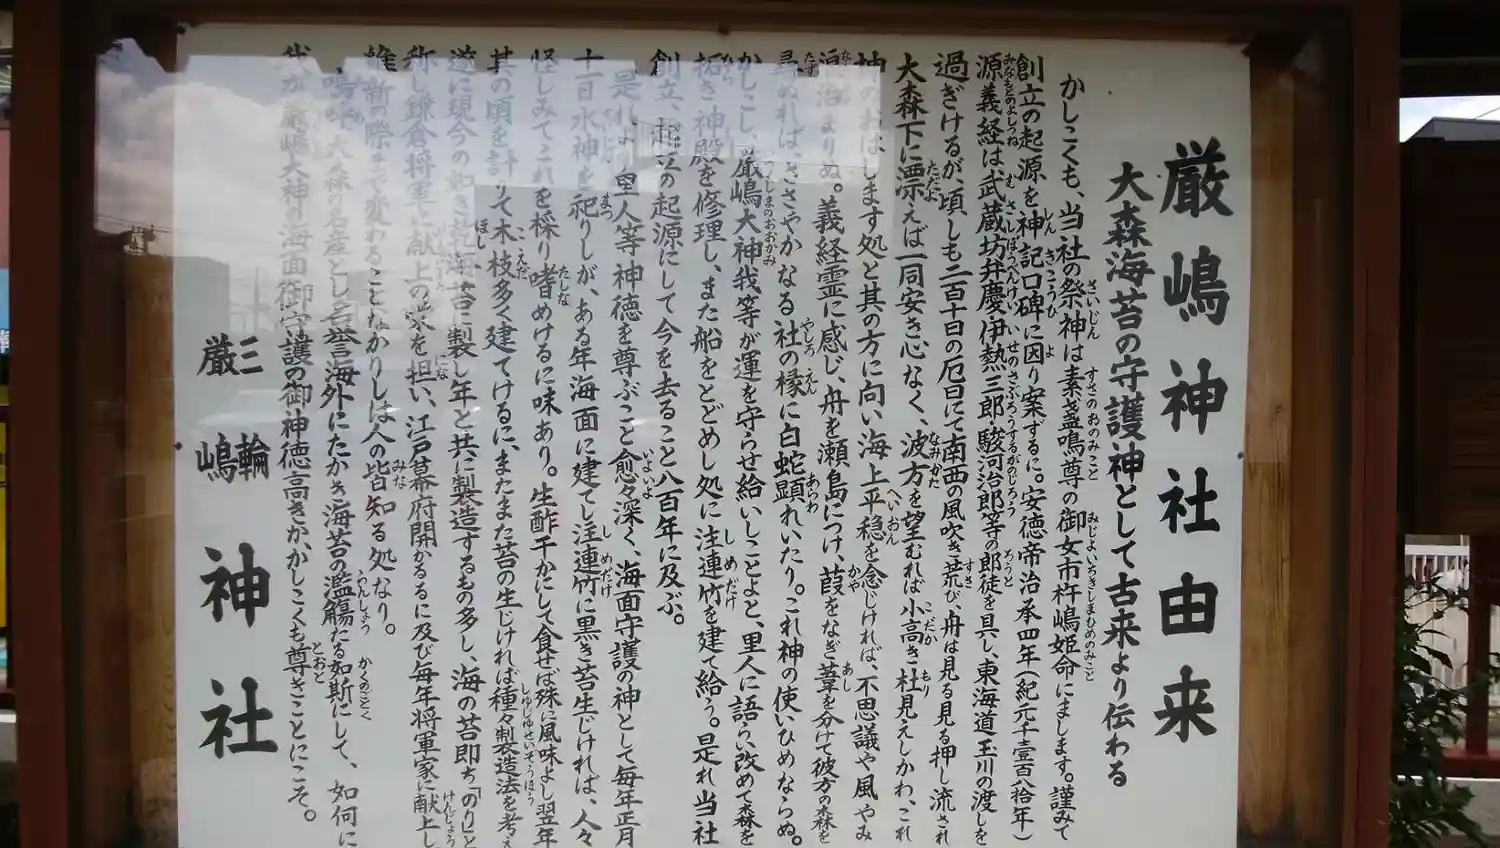 厳嶋神社由来
大森海苔の守護神として古来より伝わる
かしこくも、当社の祭神は素盞鳴尊の御女市杵嶋姫命にまします。謹みて
創立の起源を神記口碑に因り案ずるに。安徳帝治承四年(紀元千壹百拾年)
源義経は武蔵坊弁慶・伊熱三郎・駿河治郎等の郎徒を具し、東海道玉川の渡しを
過ぎけるが、頃しも二百十日の厄日にて南西の風吹き荒び、舟は見る見る押し流され
大森下に漂えば一同安き心なく、波方を望むれば小高き杜見えしかわ、これ
神のおはします処と其の方に向い海上平穏を念じければ、不思議や風やみ
浪治まりぬ。義経霊に感じ、舟を瀬島につけ、葭をなぎ葦を分けて彼方の森を
尋ぬれば、ささやかなる社の縁に白蛇顕れいたり。これ神の使いひめならぬ。
かしこし、厳嶋大神我等が運を守らせ給いしことよと、里人に語らい改めて森を
拓き神殿を修理し、また船をとどめし処に注連竹を建て給う。是れ当社
創立、起立の起源にして今を去ること八百年に及ぶ。
是れより里人等神徳を尊ぶこと愈々深く、海面守護の神として毎年正月
十一日水神を祀りしが、ある年海面に建てし注連竹に黒き苔生じければ、人々
怪しみてこれを採り嗜めけるに味あり。生酢干かにして食せば殊に風味よし翌年
其の頃を計りて木枝多く建てけるに、またまた苔の生じければ種々製造法を考え
遂に現今の如き乾海苔に製し年と共に製造するもの多し、海の苔即ち「のり」と
称し鎌倉将軍に献上の栄を担い、江戸幕府開かるるに及び毎年将軍家に献上し
維新の際まで変わることなかりしは人の皆知る処なり。
嗚呼、大森の名産とし名誉海外にたかき海苔の濫觴たる如斯にして、如何に
我が厳嶋大神の海面御守護の御神徳高きか、かしこくも尊きことにこそ。
三輪
厳嶋神社